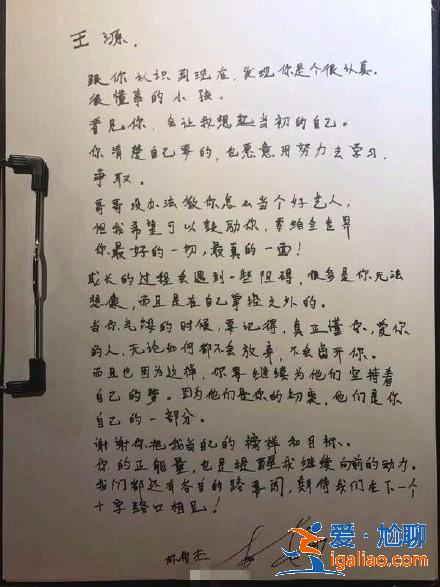 王源.
跟你认识到现在,发现你是个很认真.
很懂事的小孩。
看见你,会让我想起当初的自己。
你清楚自己要的,也愿意用努力去学习,
争取。
哥哥没办法教你怎么当个好艺人,
但我希望可以鼓励你,带给全世界
你最好的一切,最真的一面!
成长的过程会遇到一些阻碍,很多是你无法
想像,而且是在自己掌控之外的。
当你气馁的时候,要记得,真正懂你,爱你
的人,无论如何都不会放弃,不会离开你。
而且也因为这样,你要继续为他们坚持着
自己的梦。因为他们是你的初衷,他们是你
自己的一部分。
谢谢你把我当自己的榜样和目标。
你的正能量,也是提醒我继续向前的动力。
我们都还有各自的路要闯,期待我们在下一个
十字路口相见!
林俊杰
爱·尬聊
igaliao.com